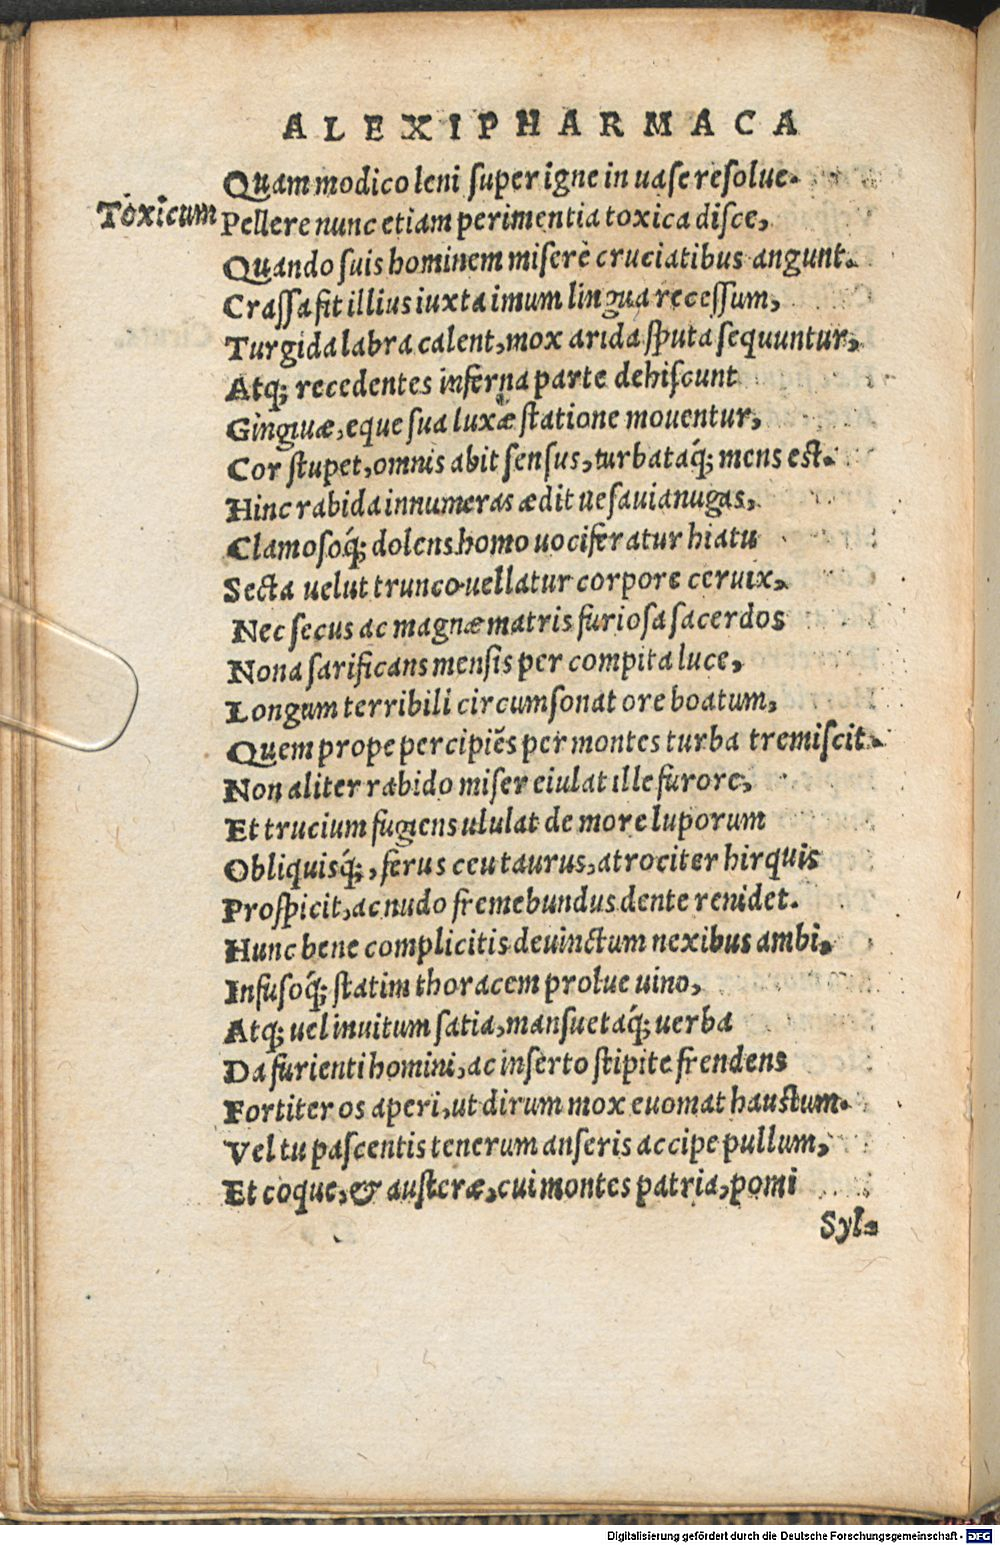 ALEXIPHARMACA
Quam modico leni super igne in uase resolue.
Toxicum Pellere nunc etiam perimentia toxica disce,
Quando suis hominem miserè cruciatibus angunt.
Crassa fit illius iuxta imum lingua recessum,
Turgida labra calent, mox arida sputa sequuntur,
Atq; recedentes inferna parte dehiscunt
Gingiuæ, eque sua luxæ statione mouentur,
Cor stupet, omnis abit sensus, turbataq́; mens est.
Hinc rabida innumeras ædit uesauia nugas,
Clamosoq́; dolens homo uociferatur hiatu
Secta uelut trunco uellatur corpore ceruix,
Nec secus ac magnæ matris furiosa sacerdos
Nona sarificans mensis per compita luce,
Longum terribili circumsonat ore boatum,
Quem prope percipiẽs per montes turba tremiscit.
Non aliter rabido miser eiulat ille furore,
Et trucium fugiens ululat de more luporum
Obliquisq́;, ferus ceu taurus, atrociter hirquis
Prospicit, ac nudo fremebundus dente renidet.
Hunc bene complicitis deuinctum nexibus ambi,
Infusoq́; statim thoracem prolue uino,
Atq; uel inuitum satia, mansuetaq́; uerba
Da furienti homini, ac inserto stipite frendens
Fortiter os aperi, ut dirum mox euomat haustum.
Vel tu pascentis tenerum anseris accipe pullum,
Et coque, & austeræ, cui montes patria, pomi
Syl-
Digitalisierung gefördert durch die Deutsche Forschungsgemeinschaft - DFG